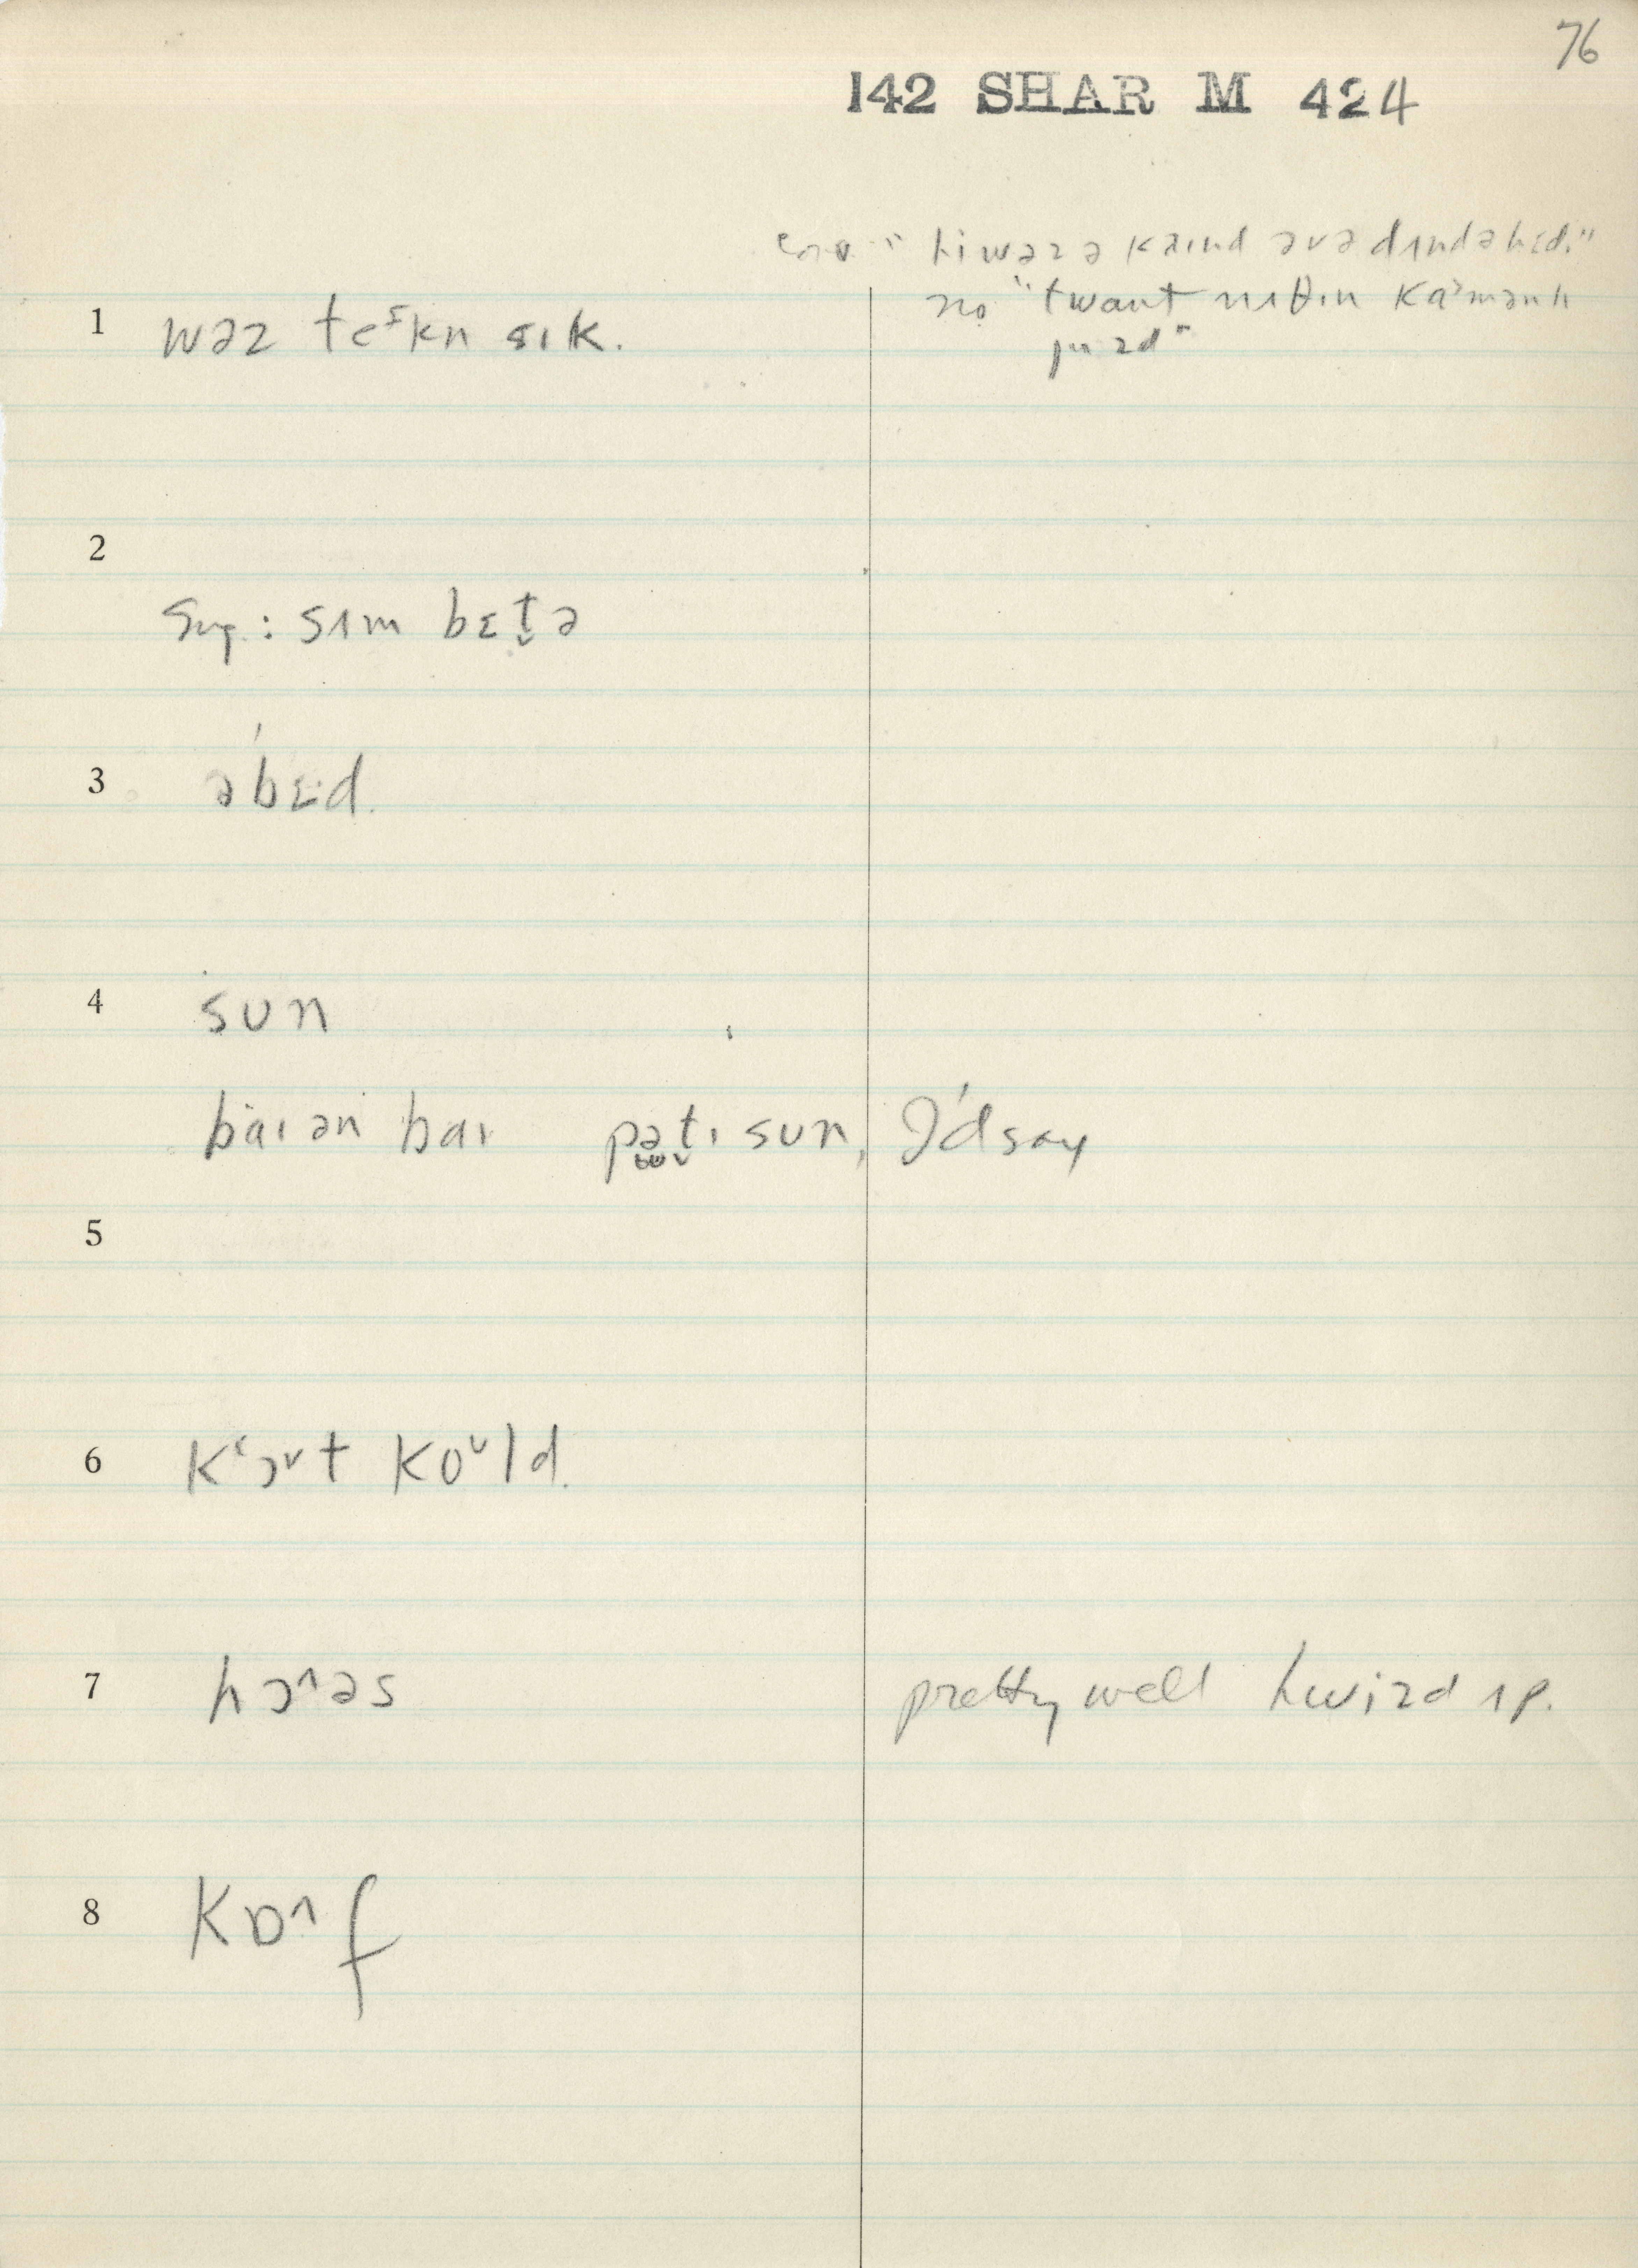 76
142 SHAR M 424
"hi wəz ə kaɪnd əv ə dʌndəhɛd."
no "twant nʌθɪn kaˑmənlɪ
juzd"
1 wəz teᶦkn sɪk.
2
Sug.: sʌm bɛt̬ə
3 əbɛˑd.
4 sun
baɪ ən baɪ pət̬ɪ sun, I'd say
5
6 kʻɔᵛt koᶷld.
7 hɔ^əs pretty well hwizd ʌp.
8 kɒ^f